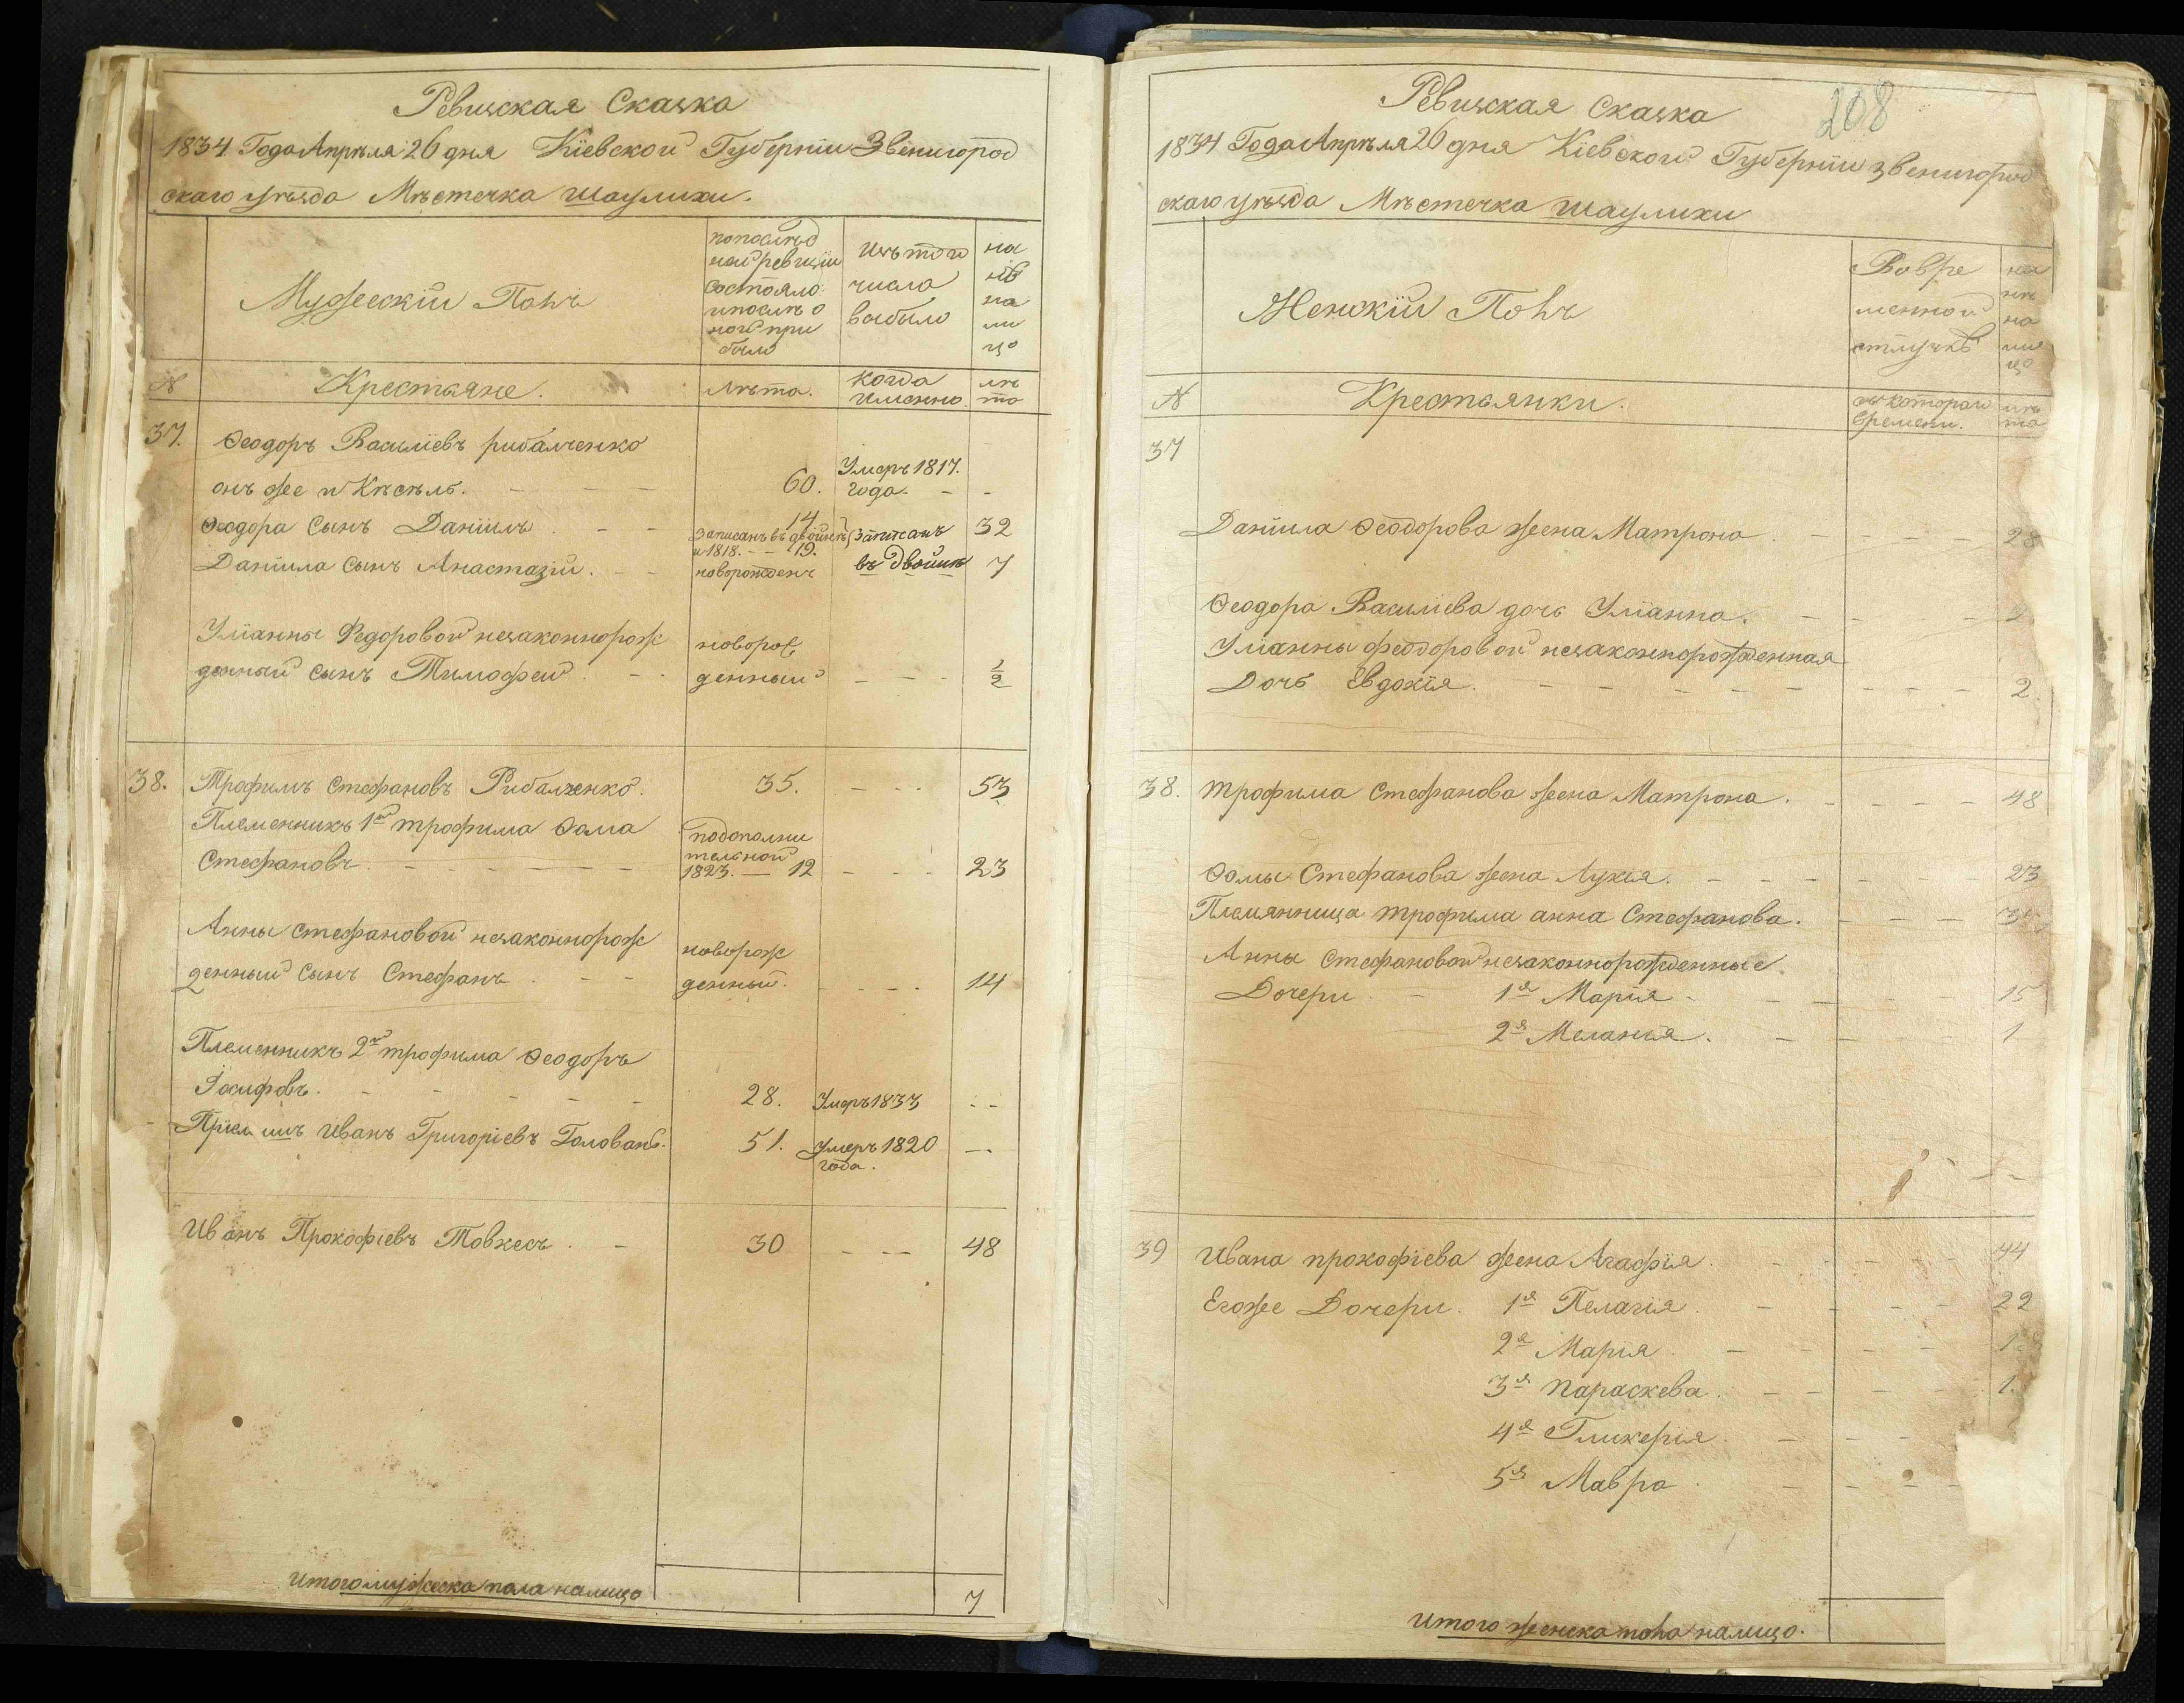 Ревизская Сказка
1834 Года Апреля 26 дня Кіевской Губерніи Звенигород
скаго уезда Местечка Шаулихи.
Мужескій Полъ
попослед
ней ревизіи
состояло
и после о
ной при
было
Изъ того
числа
выбыло
на
ли
цо
N
Крестьяне.
Лета.
когда
именно.
ле
та
37.
Ѳеодоръ Василіевъ рибалченко
онъ же и Кисель.
60.
Умеръ 1817.
года.
Ѳеодора Сынъ Даніилъ
14
записанъ въ двойне
и 1818. 19.
записанъ
въ двойне
32
Даніила Сынъ Анастазій.
новорожденъ
7
Уліанны Федоровой незаконнорож
денный сынъ Тимофей
новорож
денный
1/2
38.
Трофимъ Стефановъ Рибалченко.
35.
53
Племенникъ 1й трофима Ѳома
Стефановъ
подополни
тельной
1823. — 12
23
Анны Стефановой незаконнорож
денный Сынъ Стефанъ
новорож
денный.
14
Племенникъ 2й трофима Ѳеодоръ
Іосифовъ.
28.
Умеръ 1833
Иванъ Григоріевъ Голованъ.
51.
Умеръ 1820
года.
Иванъ Прокофіевъ Товкесъ
30
48
Итого мужеска пола налицо
7
208
Ревизская Сказка
1834 Года Апреля 26 дня Кіевской Губерніи Звенигород
скаго уезда Местечка Шаулихи
Женскій Полъ
Вовре
менной
отлучке
на
ли
цо
N
Крестьянки.
съ котораго
времени.
ле
та
37
Даніила Ѳеодорова жена Матрона
28
Ѳеодора Василіева дочь Уліанна.
Уліанны феодоровой незаконнорожденная
Дочь Евдокія.
2.
38.
трофима Стефанова жена Матрона.
48
Ѳомы Стефанова жена Лукія.
23
Племянница трофима анна Стефанова.
Анны Стефановой незаконнорожденные
Дочери 1я Марія
15
2я Меланія.
1
39
Ивана прокофіева жена Агафія.
44
Егоже Дочери. 1я Пелагія.
22
2я Марія
3я параскева.
4я Гликерія
5я Мавра
Итого женска пола налицо.